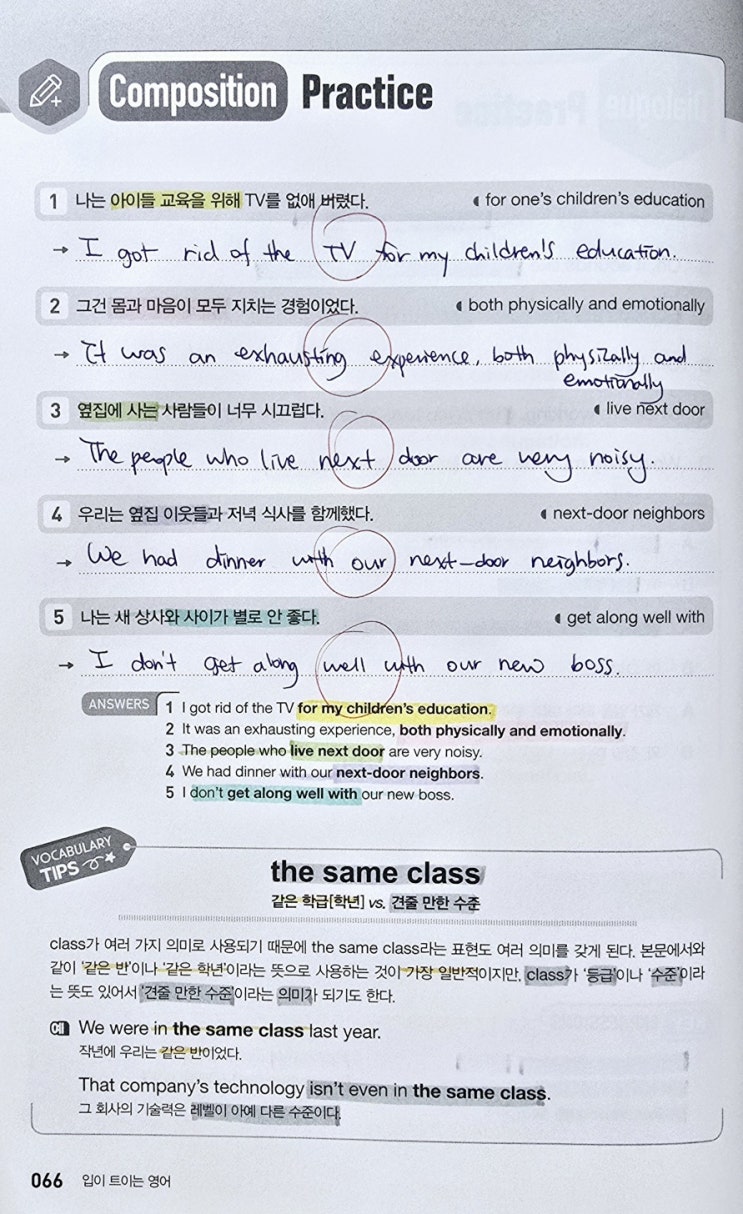 Composition Practice
1 나는 아이들 교육을 위해 TV를 없애 버렸다. for one's children's education
→ I got rid of the TV for my children's education.
2 그건 몸과 마음이 모두 지치는 경험이었다. both physically and emotionally
→ It was an exhausting experience, both physically and
emotionally
3 옆집에 사는 사람들이 너무 시끄럽다. live next door
→ The people who live next door are very noisy.
4 우리는 옆집 이웃들과 저녁 식사를 함께했다. next-door neighbors
→ We had dinner with our next-door neighbors.
5 나는 새 상사와 사이가 별로 안 좋다. get along well with
→ I don't get along well with our new boss.
ANSWERS 1 I got rid of the TV for my children's education.
2 It was an exhausting experience, both physically and emotionally.
3 The people who live next door are very noisy.
4 We had dinner with our next-door neighbors.
5 I don't get along well with our new boss.
VOCABULARY
TIPS
the same class
같은 학급[학년] vs. 견줄 만한 수준
class가 여러 가지 의미로 사용되기 때문에 the same class라는 표현도 여러 의미를 갖게 된다. 본문에서와
같이 '같은 반'이나 '같은 학년'이라는 뜻으로 사용하는 것이 가장 일반적이지만, class가 '등급'이나 '수준'이라
는 뜻도 있어서 '견줄 만한 수준'이라는 의미가 되기도 한다.
예 We were in the same class last year.
작년에 우리는 같은 반이었다.
That company's technology isn't even in the same class.
그 회사의 기술력은 레벨이 아예 다른 수준이다.
066 입이 트이는 영어